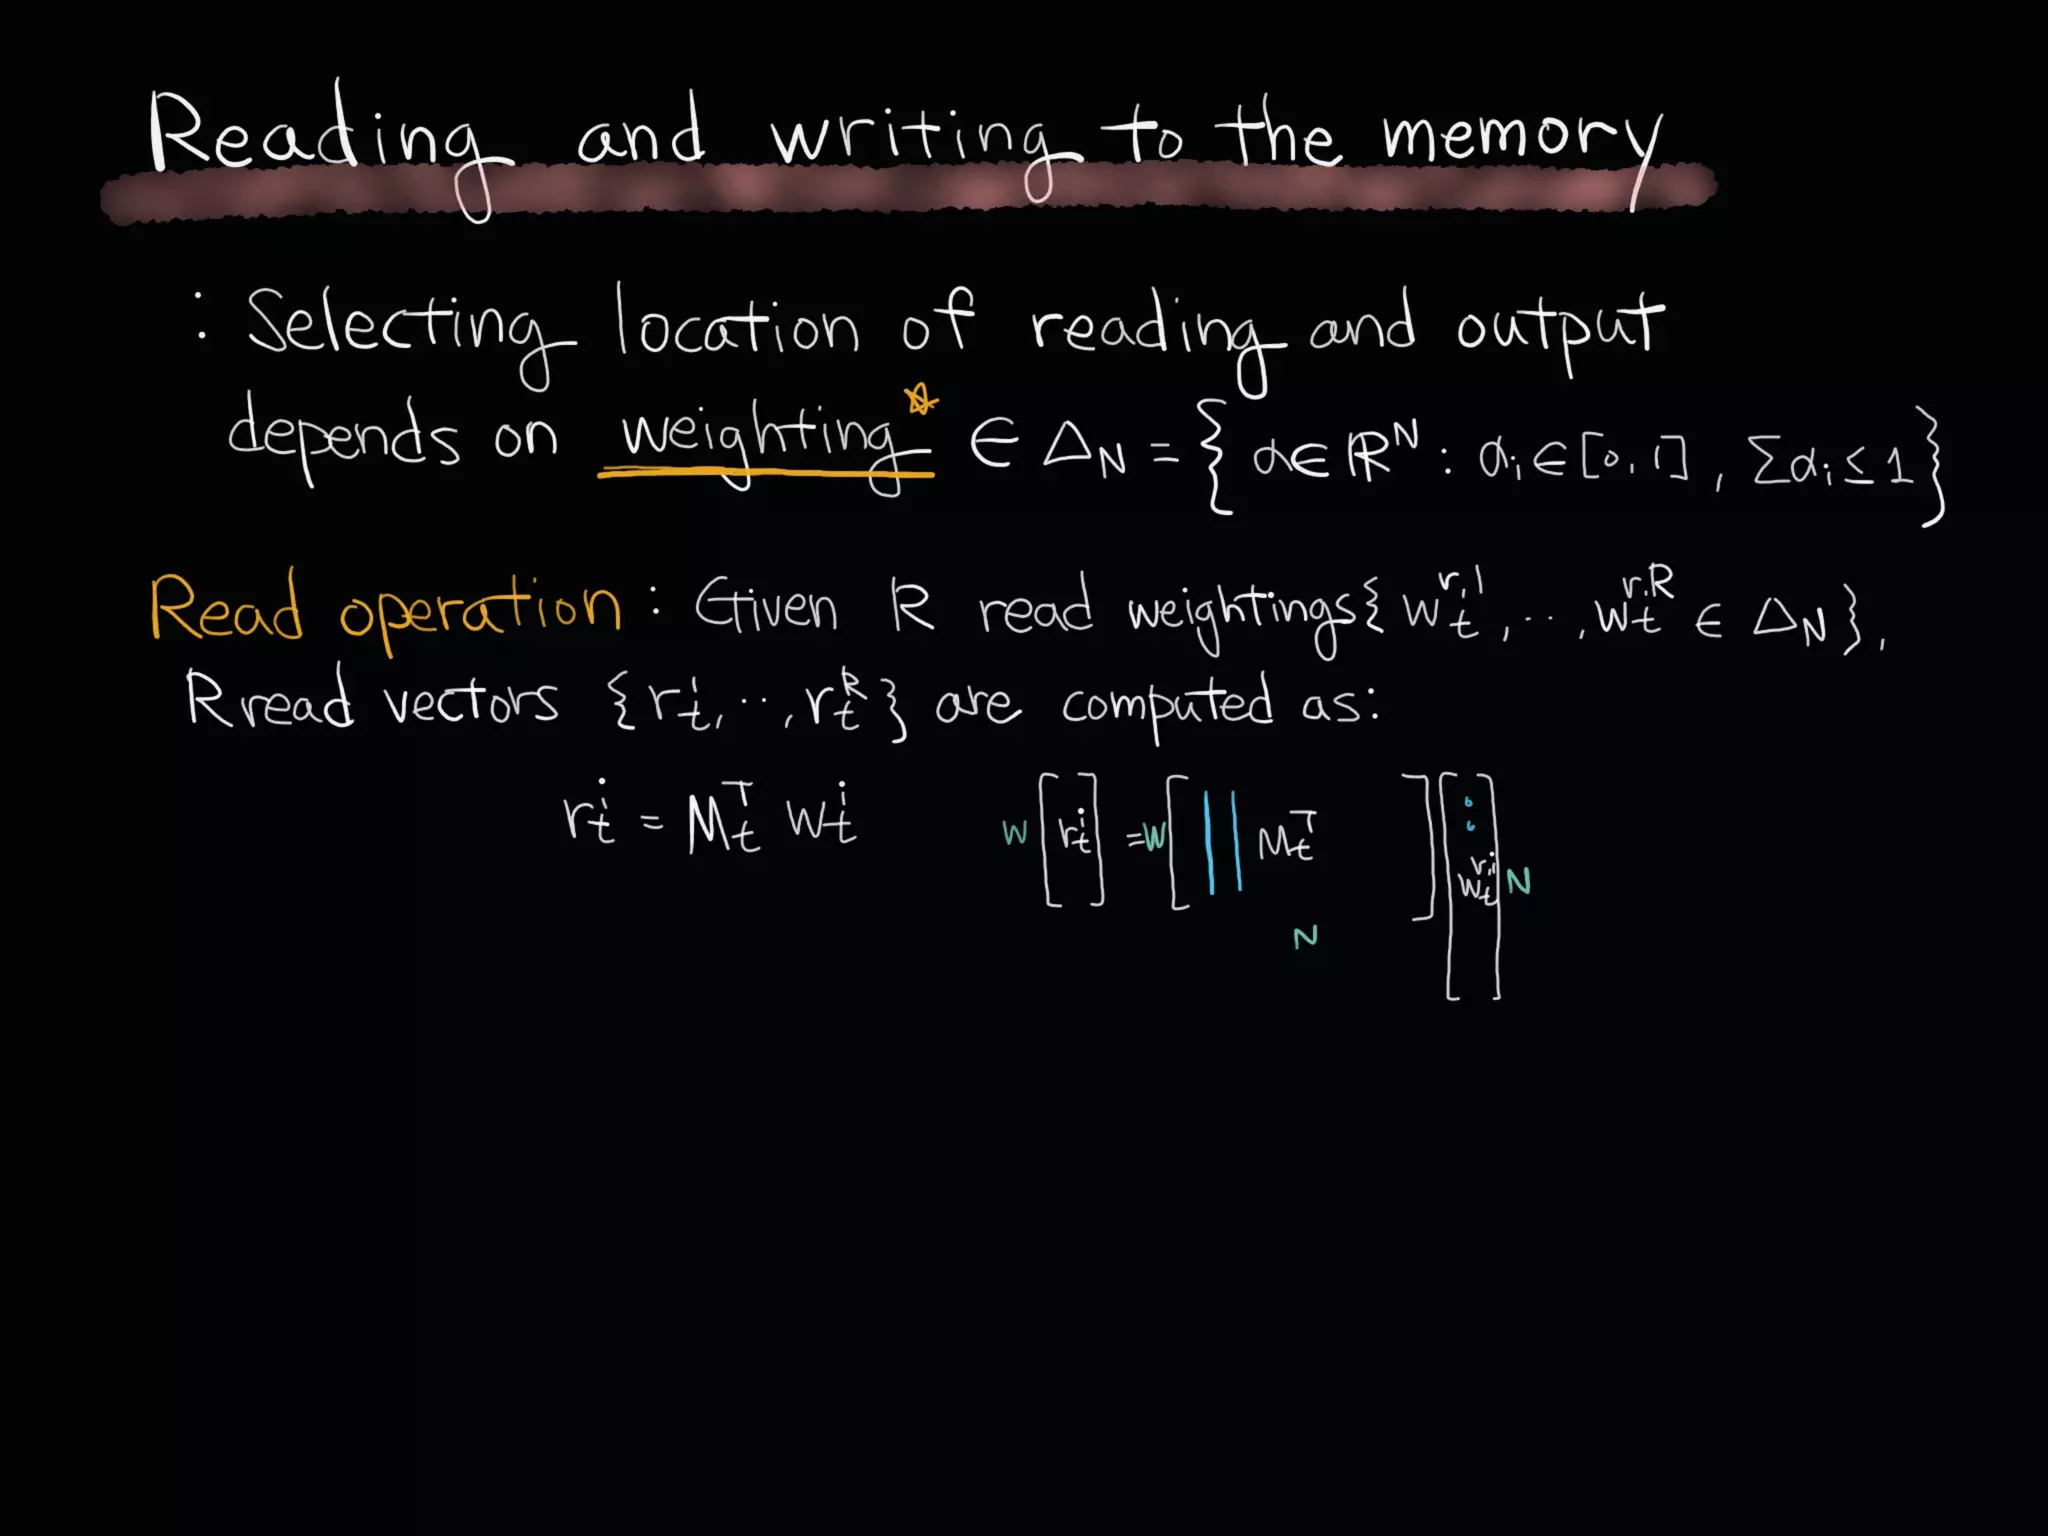 Reading and writing to the memory
: Selecting location of reading and output
depends on weighting* ∈ Δ_N = { α ∈ ℝ^N : α_i ∈ [0, 1], Σα_i ≤ 1 }
Read operation : Given R read weightings { w_t^{r,1}, ··, w_t^{r,R} ∈ Δ_N },
R read vectors { r_t^1, ··, r_t^R } are computed as:
r_t^i = M_t^T w_t^i
W [ r_t^i ] = W [ M_t^T ] [ w_t^{r,i} ] N
N